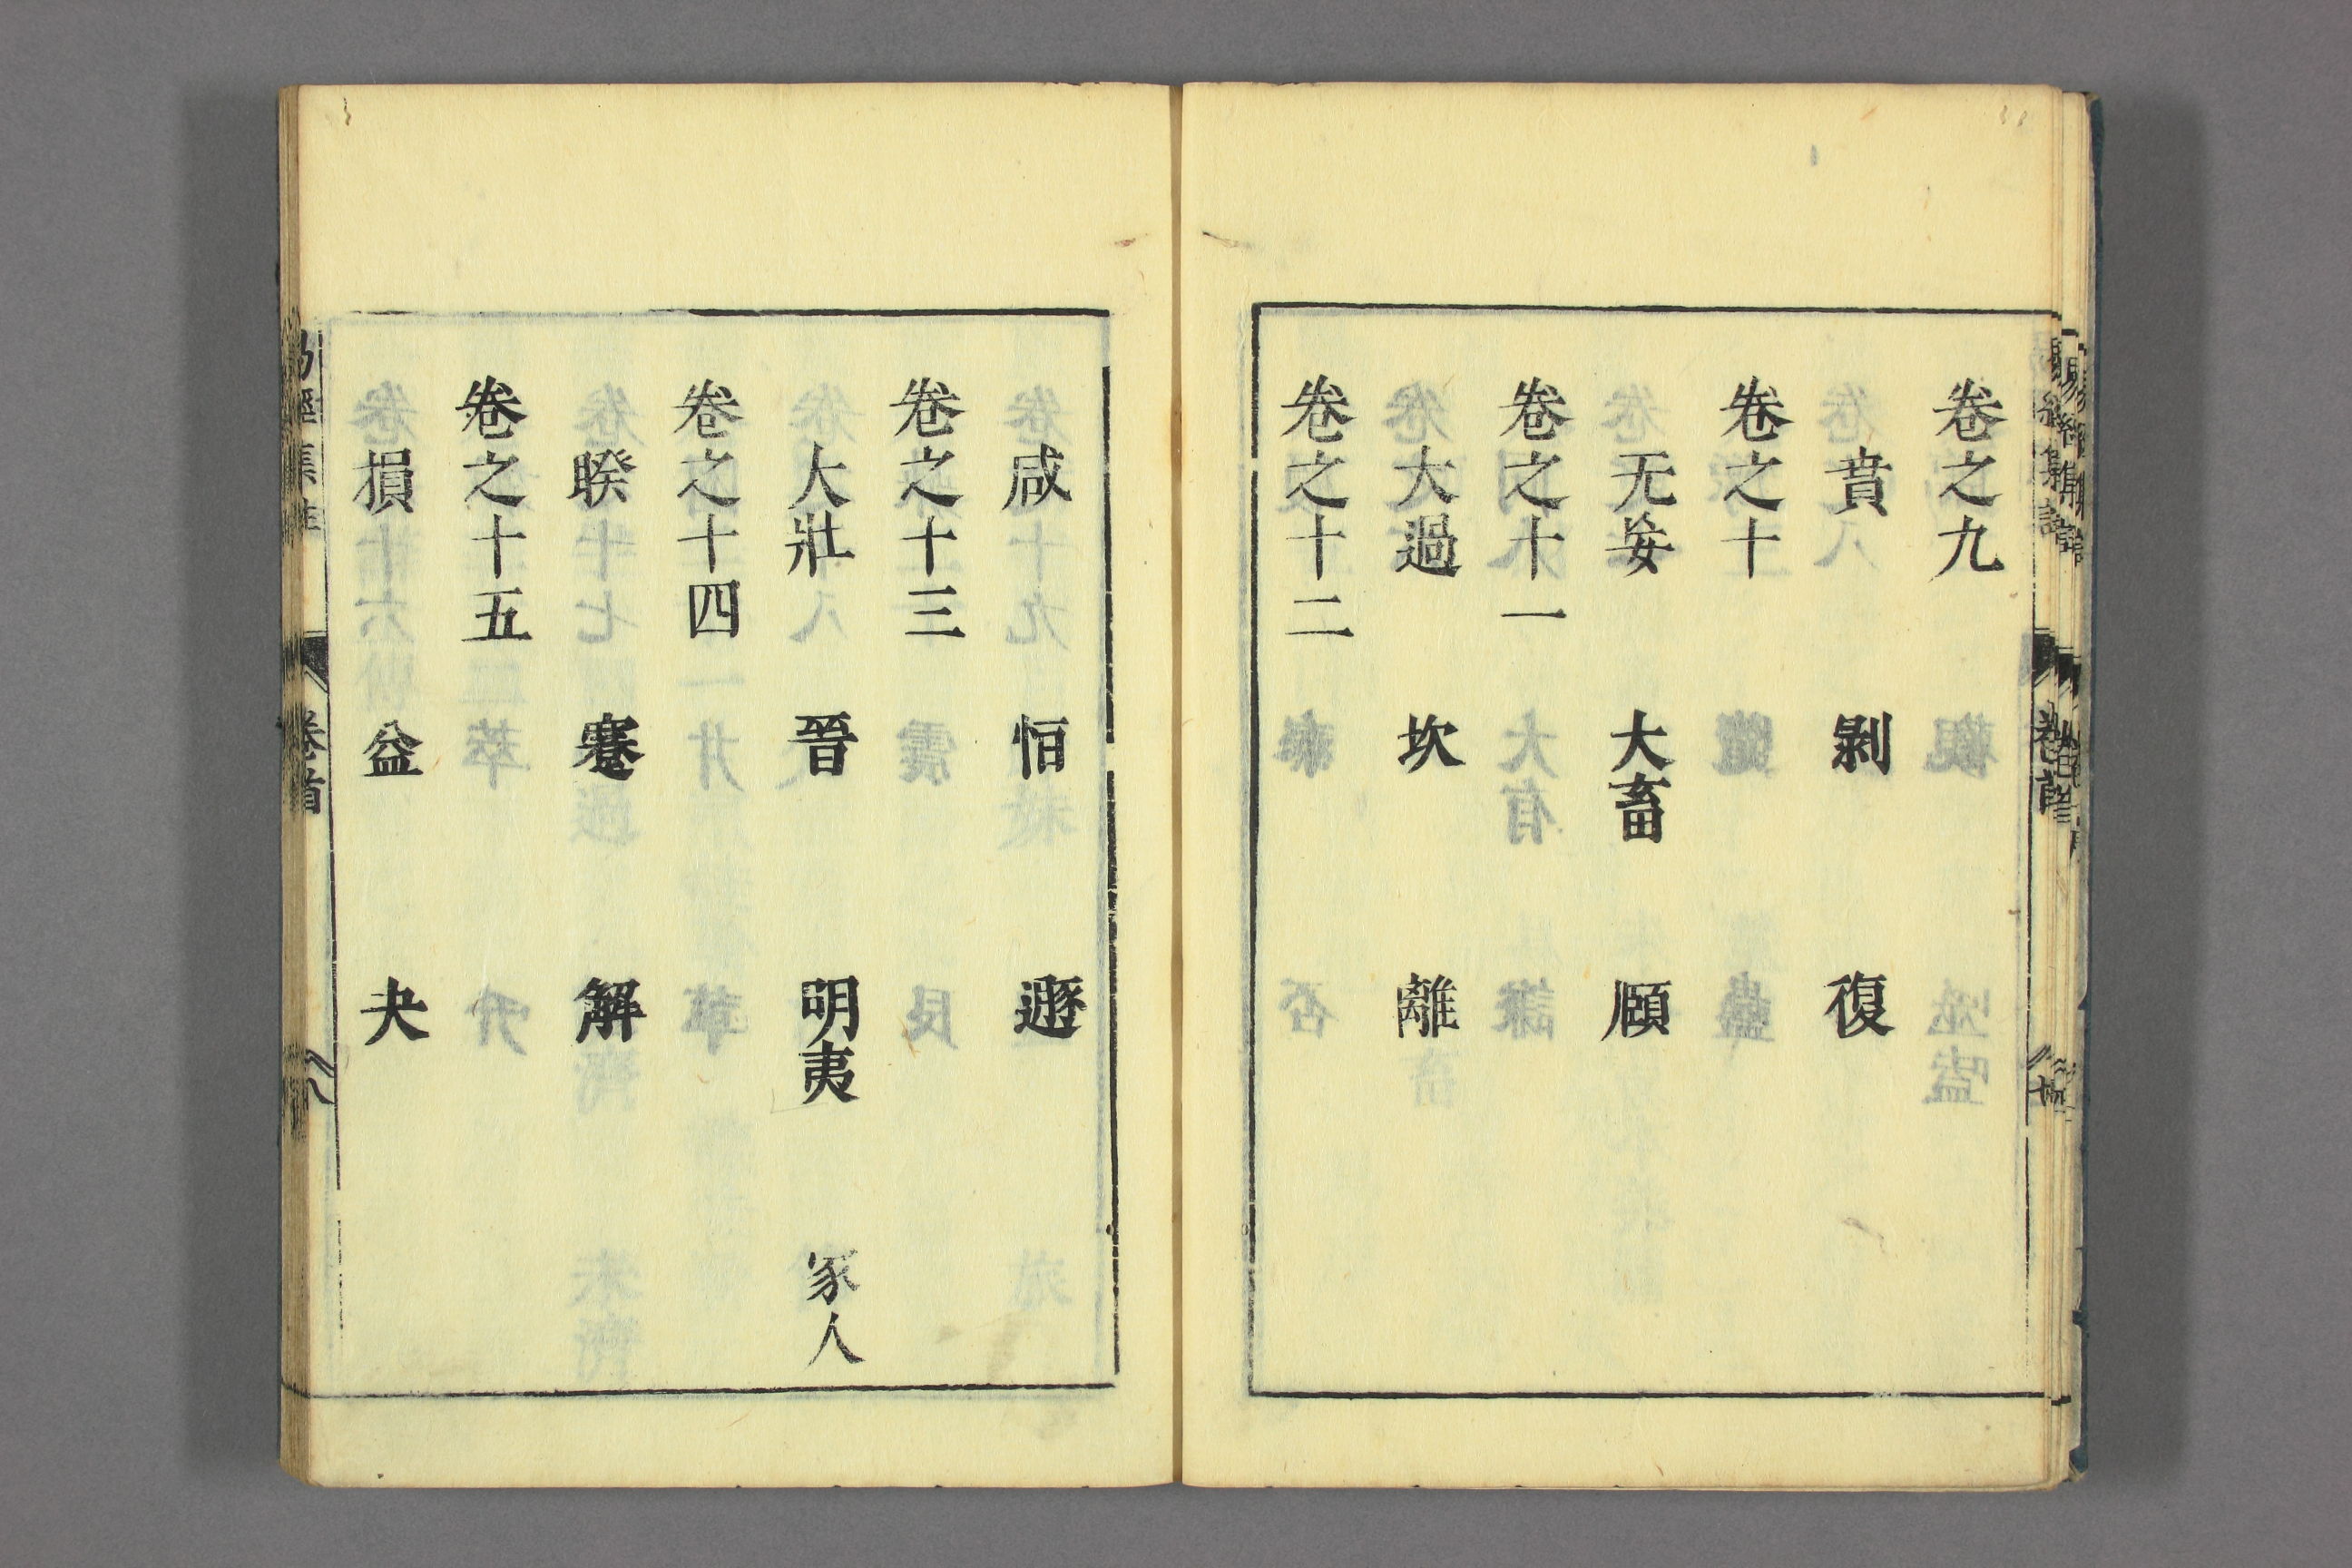 卷之九
賁 剝 復
卷之十
无妄 大畜 頤
卷之十一
大過 坎 離
卷之十二
咸 恒 遯
卷之十三
大壯 晉 明夷 家人
卷之十四
睽 蹇 解
卷之十五
損 益 夬
易經集註 卷首 八